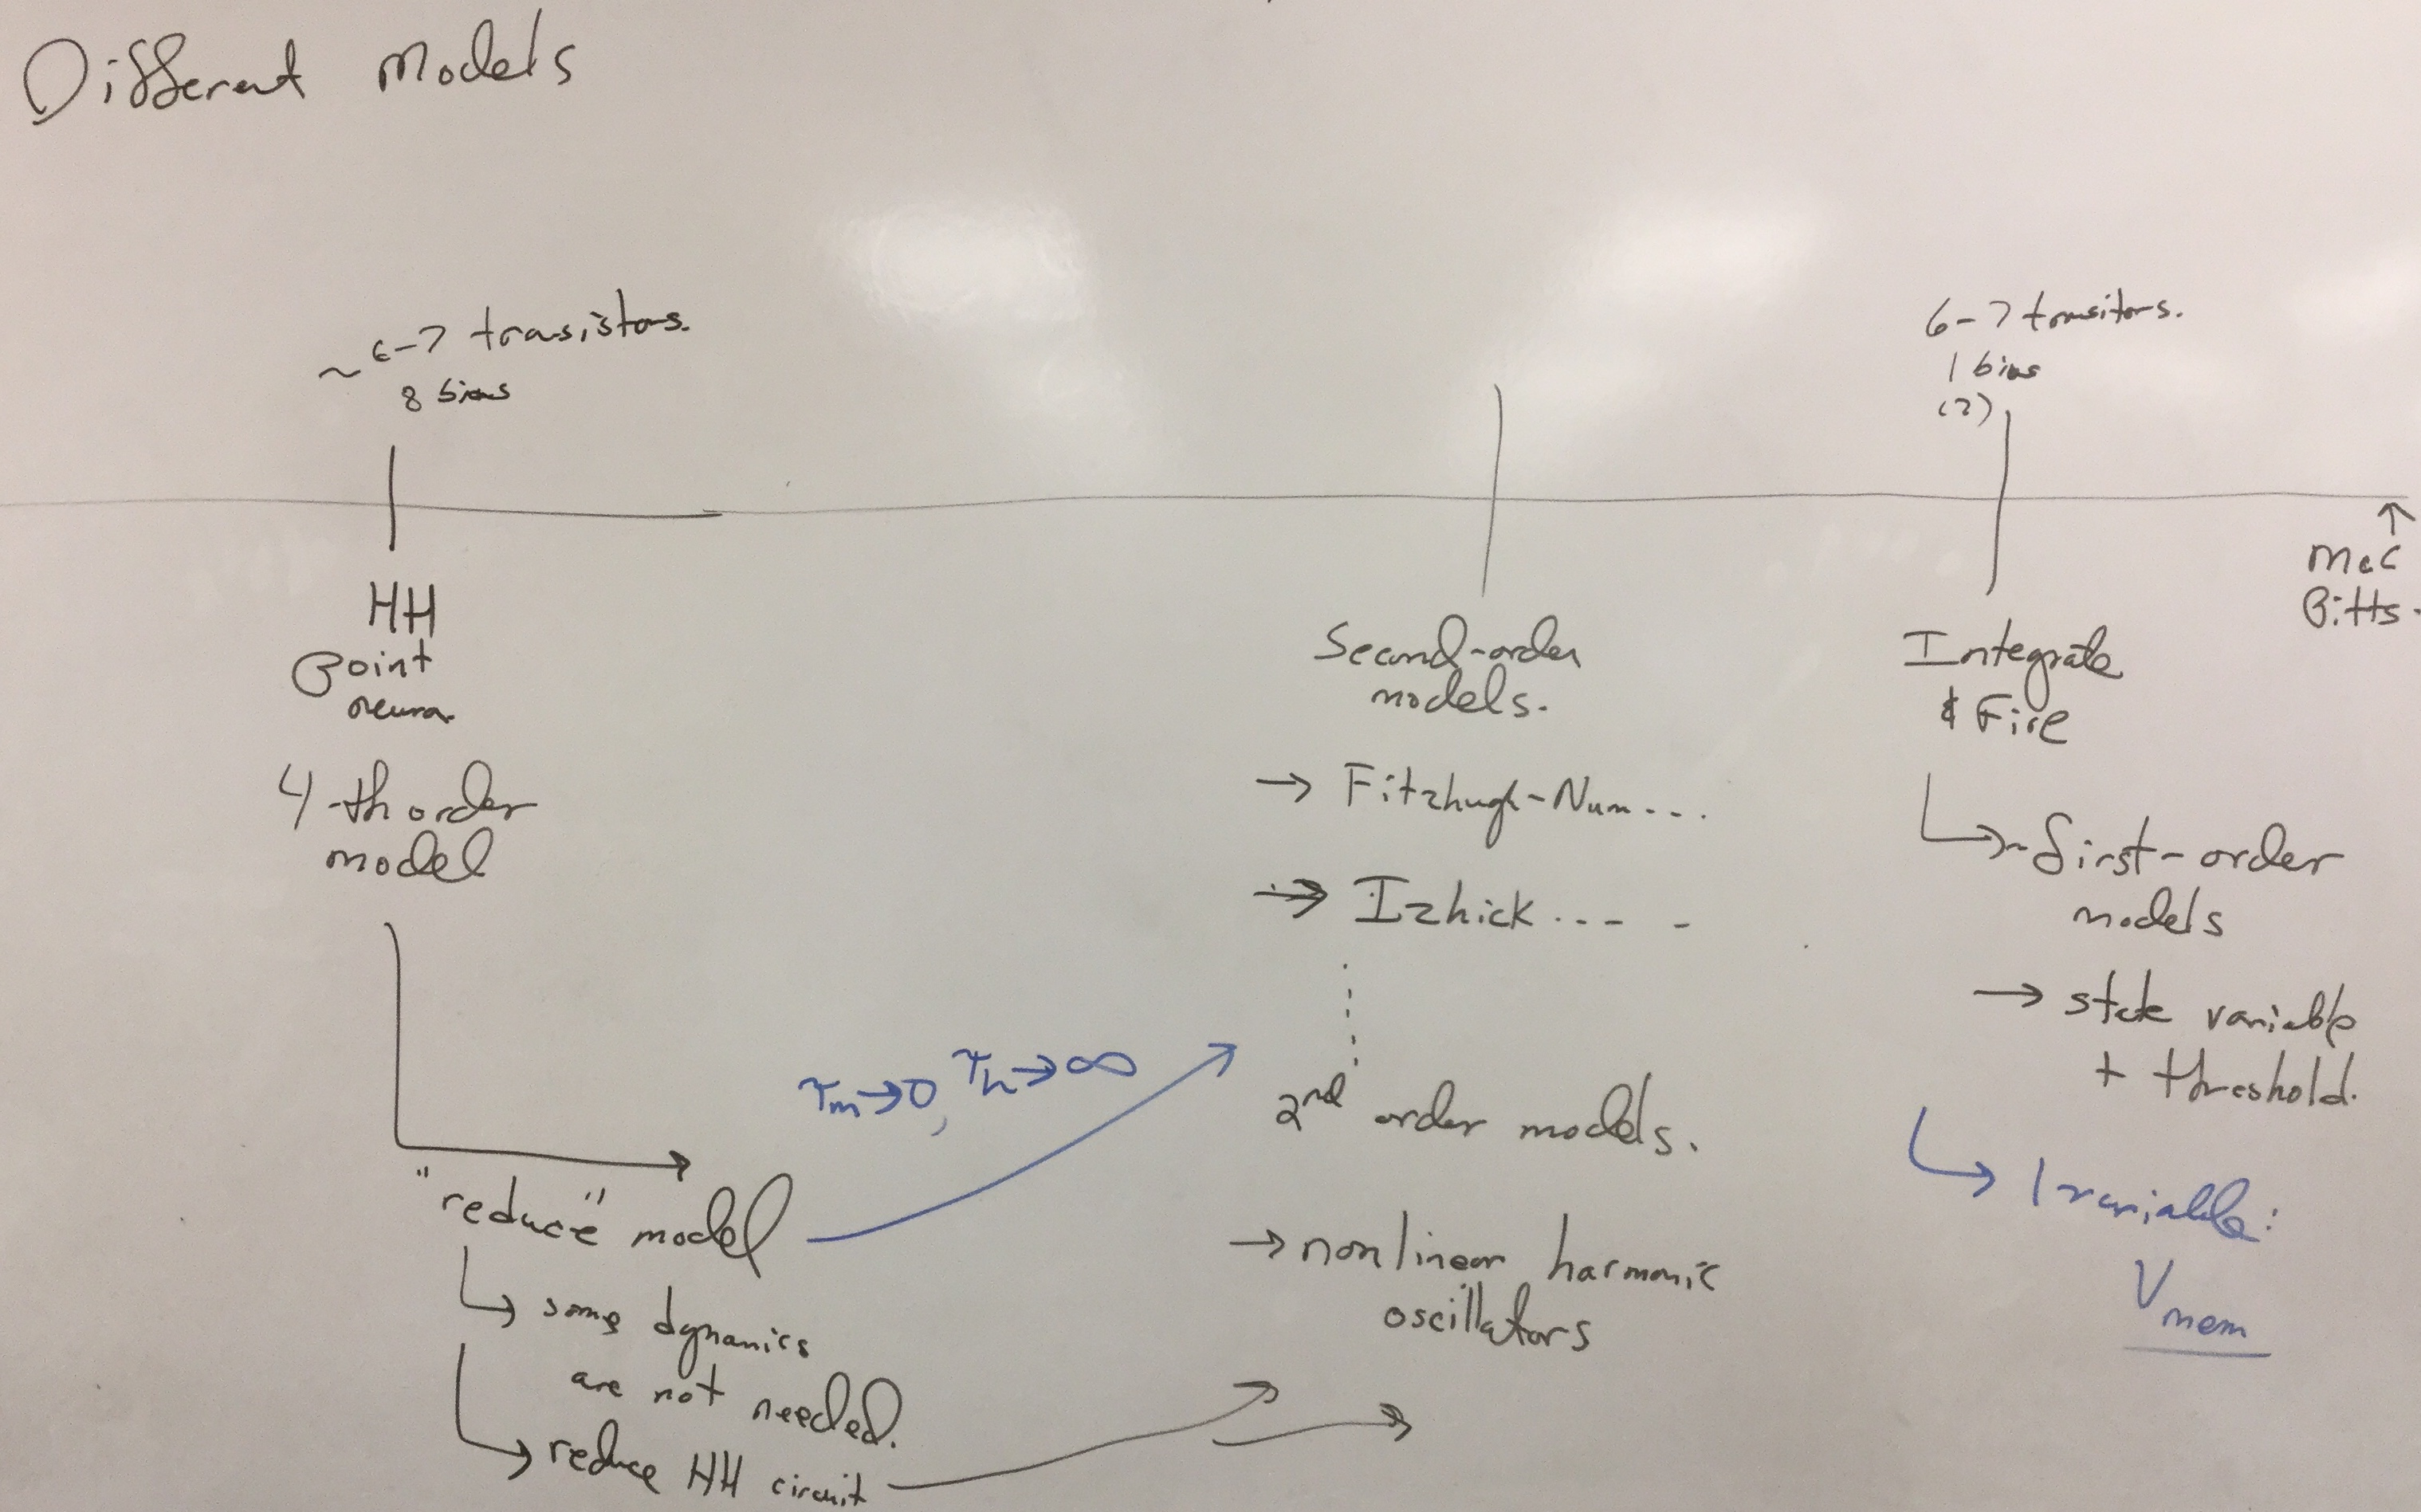 Different Models
~ 6-7 transistors.
8 bias
HH
Point
neuron
4-th order
model
"reduce" model
some dynamics
are not needed.
reduce HH circuit
τm→0, τh→∞
Second-order
models.
→ Fitzhugh-Num....
→ Izhick.... -
2nd order models.
→ nonlinear harmonic
oscillators
6-7 transitors.
1 bias
(2)
Integrate
& Fire
first-order
models
→ state variable
+ threshold.
1 variable:
Vmem
McC
Pitts.